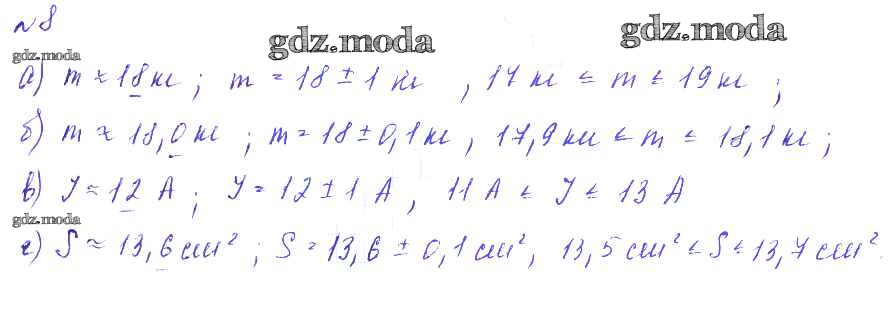 №8
gdz.moda
gdz.moda
gdz.moda
а) m ≈ 18 кг ; m = 18 ± 1 кг , 17 кг ≤ m ≤ 19 кг ;
б) m ≈ 18,0 кг ; m = 18 ± 0,1 кг , 17,9 кг ≤ m ≤ 18,1 кг ;
в) J ≈ 12 А ; J = 12 ± 1 А , 11 А ≤ J ≤ 13 А
gdz.moda
г) S ≈ 13,6 см² ; S = 13,6 ± 0,1 см² , 13,5 см² ≤ S ≤ 13,7 см² .